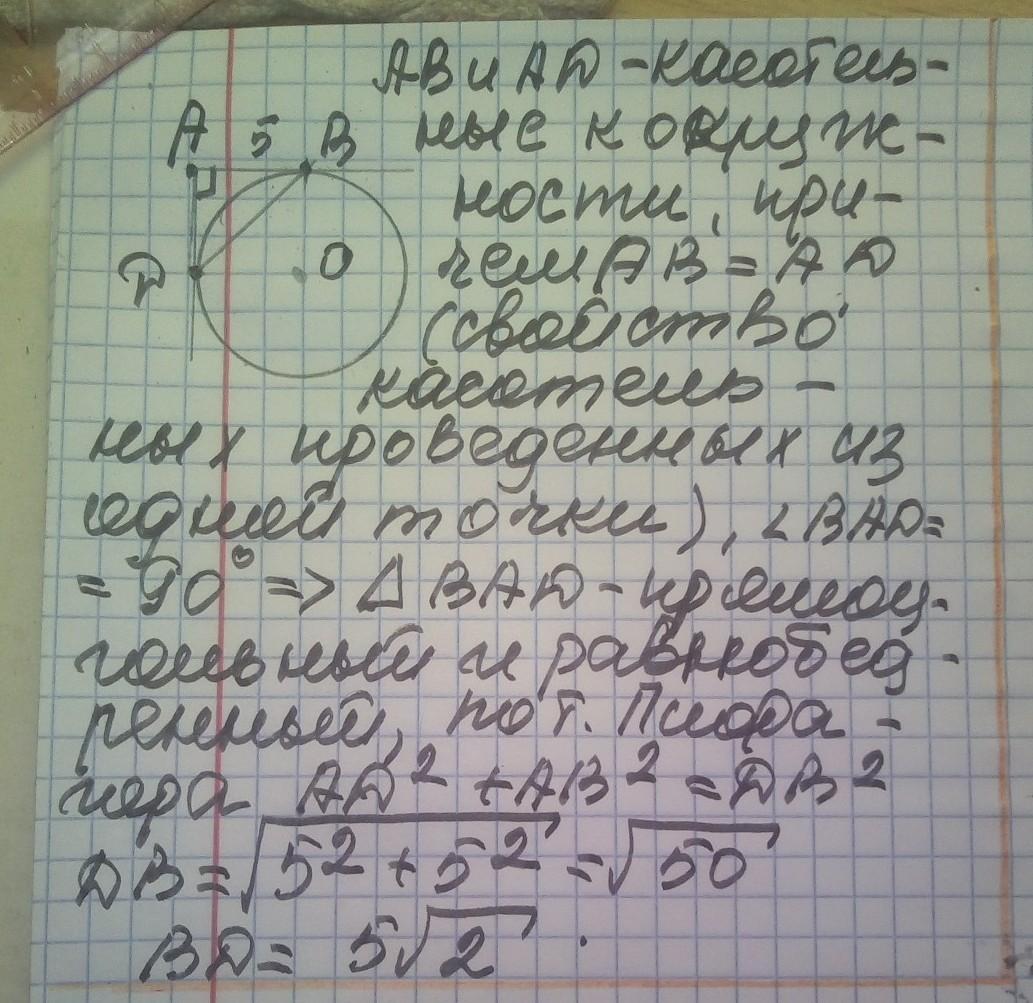 АВ и АD - касатель-
A 5 B
ные к окруж-
ности, при-
D O
чем АВ = АD
(свойство
касатель-
ных проведенных из
одной точки), ∠BAD=
= 90° => Δ BAD - прямоу-
гольный и равнобед-
ренный, по т. Пифа-
гора AD² + AB² = DB²
DB = √5² + 5² = √50
BD = 5√2.